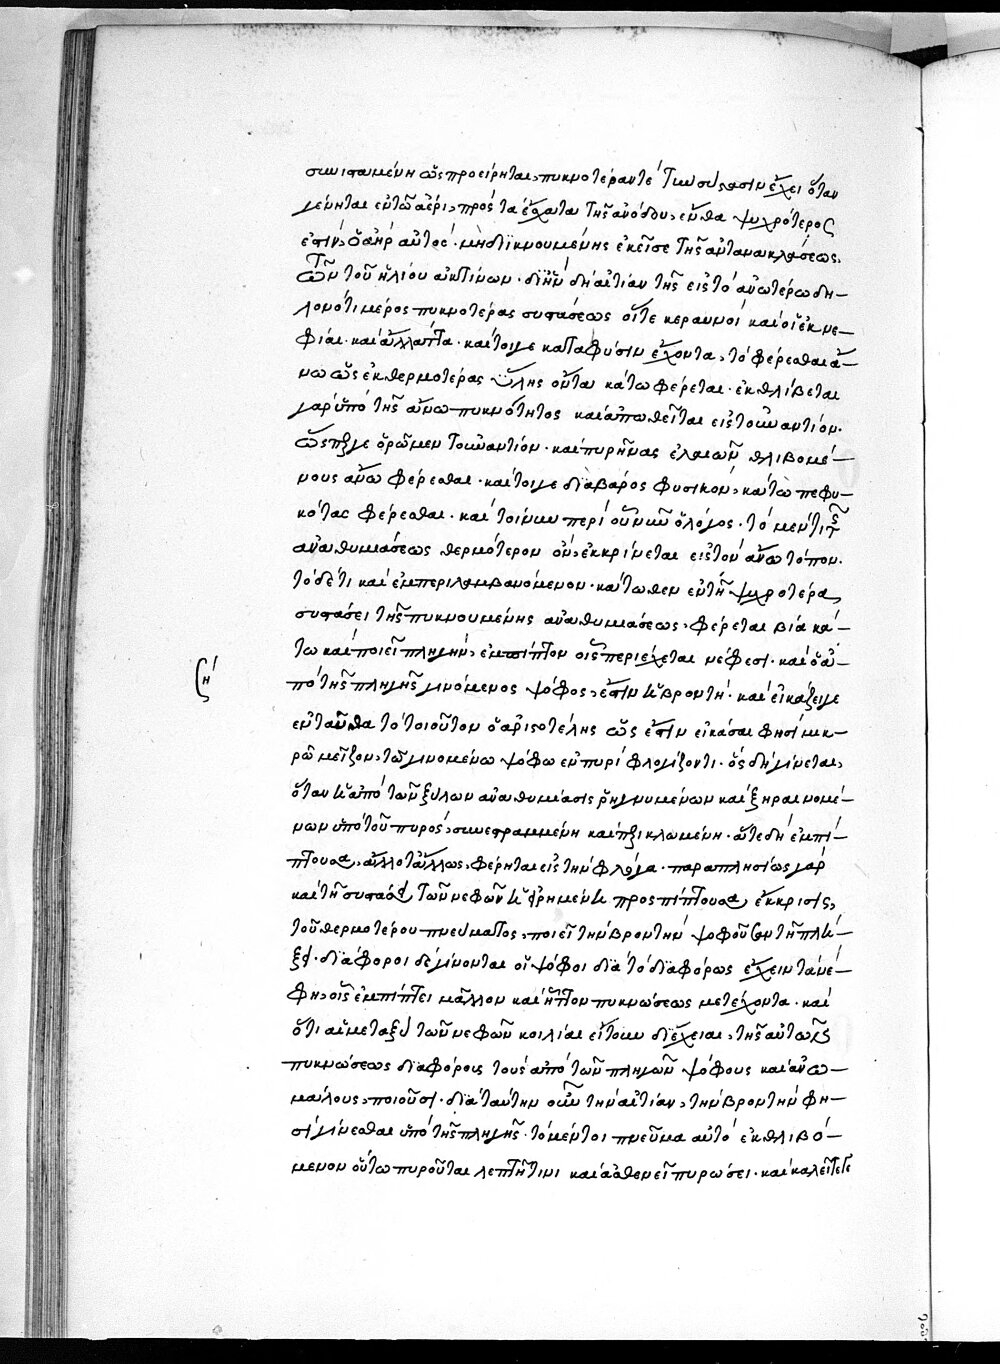 συνισταμένη ὡς προείρηται, πυκνοτέραν τὲ τὴν σύστασιν ἔχει ὅταν
γένηται ἐν τῶ ἀέρι, πρὸς τὰ ἔσχατα τῆς ἀνόδου, ἔνθα ψυχρότερος
ἐστὶν, ὁ ἀὴρ αὐτὸς· μὴ διϊκνουμένης ἐκεῖσε τῆς ἀντανακλάσεως,
τῶν τοῦ ἡλίου ἀκτίνων· δι' ἣν δὴ αἰτίαν τῆς εἰς τὸ ἀνωτέρω δη-
λονότι μέρος πυκνοτέρας συστάσεως οἵ τε κεραυνοὶ καὶ οἱ ἐκνε-
φίαι· καὶ ἄλλα ττα· καίτοιγε κατὰ φύσιν ἔχοντα, τὸ φέρεσθαι ἄ-
νω ὡς ἐκ θερμοτέρας ὕλης ὄντα κάτω φέρεται· ἐκθλίβεται
γὰρ ὑπὸ τῆς ἄνω πυκνότητος καὶ ἀπωθεῖται εἰς τοὐναντίον·
ὥσπερ γε ὁρῶμεν τοὐναντίον· καὶ πυρῆνας ἐλαιῶν θλιβομέ-
νους ἄνω φέρεσθαι· καίτοιγε διὰ βάρος φυσικὸν, κάτω πεφυ-
κότας φέρεσθαι· καὶ τοίνυν περὶ οὗ νῦν ὁ λόγος· τὸ μέν τι τῆς
ἀναθυμιάσεως θερμότερον ὂν, ἐκκρίνεται εἰς τὸν ἄνω τόπον·
τὸ δέ τι καὶ ἐμπεριλαμβανόμενον· κάτωθεν ἐν τῆ ψυχροτέρα
συστάσει τῆς πυκνουμένης ἀναθυμιάσεως, φέρεται βία κά-
τω καὶ ποιεῖ πληγὴν, ἐμπίπτον οἷς περιέχεται νέφεσι· καὶ ὁ ἀ-
πὸ τῆς πληγῆς γινόμενος ψόφος, ἐστὶν ἡ βροντή· καὶ εἰκάζει γε
ἐνταῦθα τὸ τοιοῦτον ὁ ἀριστοτέλης ὡς ἔστιν εἰκάσαι φησὶ μικ-
ρῶ μεῖζον, τῶ γινομένω ψόφω ἐν πυρὶ φλογίζοντι· ὃς δὴ γίνεται,
ὅταν ἡ ἀπὸ τῶν ξύλων ἀναθυμίασις ῥηγνυμένων καὶ ξηραινομέ-
νων ὑπὸ τοῦ πυρὸς, συνεστραμμένη καὶ περικλωμένη· ἅτε δὴ ἐμπί-
πτουσα, ἄλλοτ' ἄλλως, φέρηται εἰς τὴν φλόγα· παραπλησίως γὰρ
καὶ τῆ συστάσει τῶν νεφῶν ἡ εἰρημένη προσπίπτουσα ἔκκρισις,
τοῦ θερμοτέρου πνεύματος, ποιεῖ τὴν βροντὴν ψοφοῦσαν τῆ πλή-
ξει· διάφοροι δὲ γίνονται οἱ ψόφοι διὰ τὸ διαφόρως ἔχειν τὰ νέ-
φη, οἷς ἐμπίπτει μᾶλλον καὶ ἧττον πυκνώσεως μετέχοντα· καὶ
ὅτι αἱ μεταξὺ τῶν νεφῶν κοιλίαι εἴτουν διέχειαι, τῆς αὐτῶν
πυκνώσεως διαφόρους τοὺς ἀπὸ τῶν πληγῶν ψόφους καὶ ἀνω-
μάλους, ποιοῦσι· διὰ ταύτην οὖν τὴν αἰτίαν, τὴν βροντὴν φη-
σὶ γίνεσθαι ὑπὸ τῆς πληγῆς· τὸ μέντοι πνεῦμα αὐτὸ ἐκθλιβό-
μενον οὕτω πυροῦται λεπτῆ τινι καὶ ἀσθενεῖ πυρώσει· καὶ καλεῖται